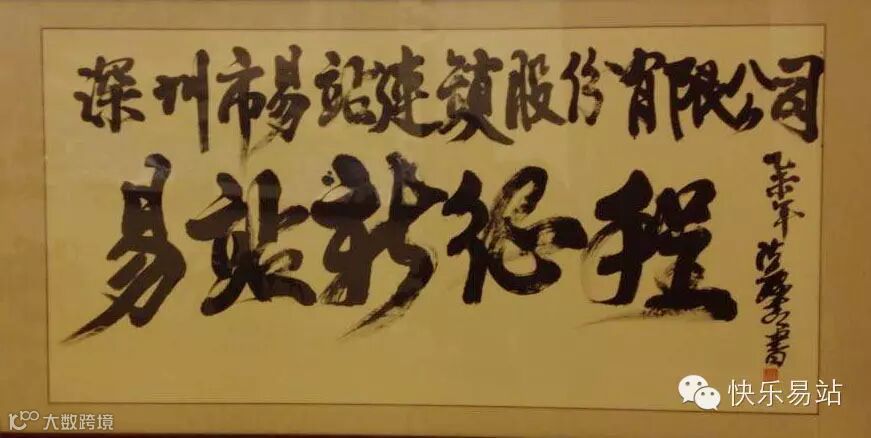 深圳市易站连锁股份有限公司
易站新征程
乙未年
书
快乐易站
大数跨境